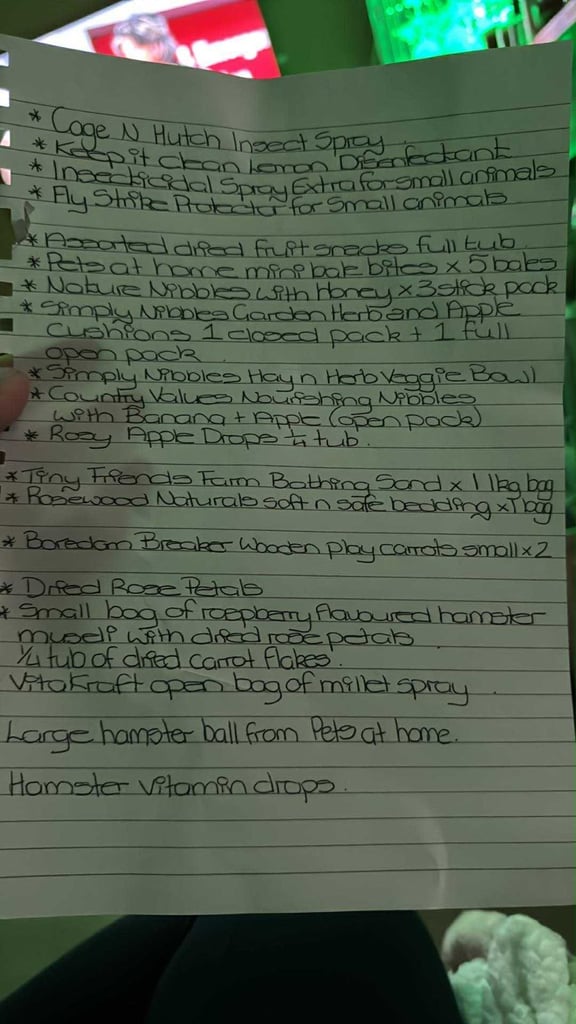 * Cage N Hutch Insect Spray
* Keep it clean Lemon Disenfectant
* Insecticidal Spray Extra for small animals
* Fly Strike Protector for Small animals
* Assorted dried fruit snacks full tub
* Pets at home mini bak bites x 5 baks
* Nature Nibbles with Honey x 3 stick pack
* Simply Nibbles Garden Herb and Apple
Cushions 1 closed pack + 1 full
open pack
* Simply Nibbles Hay n Herb Veggie Bowl
* Country Values Nourishing Nibbles
with Banana + Apple (open pack)
* Rosy Apple Drops ¼ tub.
* Tiny Friends Farm Bathing Sand x 1 1kg bag
* Rosewood Naturals soft n safe bedding x 1 bag
* Boredom Breaker Wooden play carrots small x 2
* Dried Rose Petals
* Small bag of raspberry flavoured hamster
muesli with dried rose petals
¼ tub of dried carrot flakes.
VitaKraft open bag of millet spray.
Large hamster ball from Pets at home.
Hamster Vitamin drops.